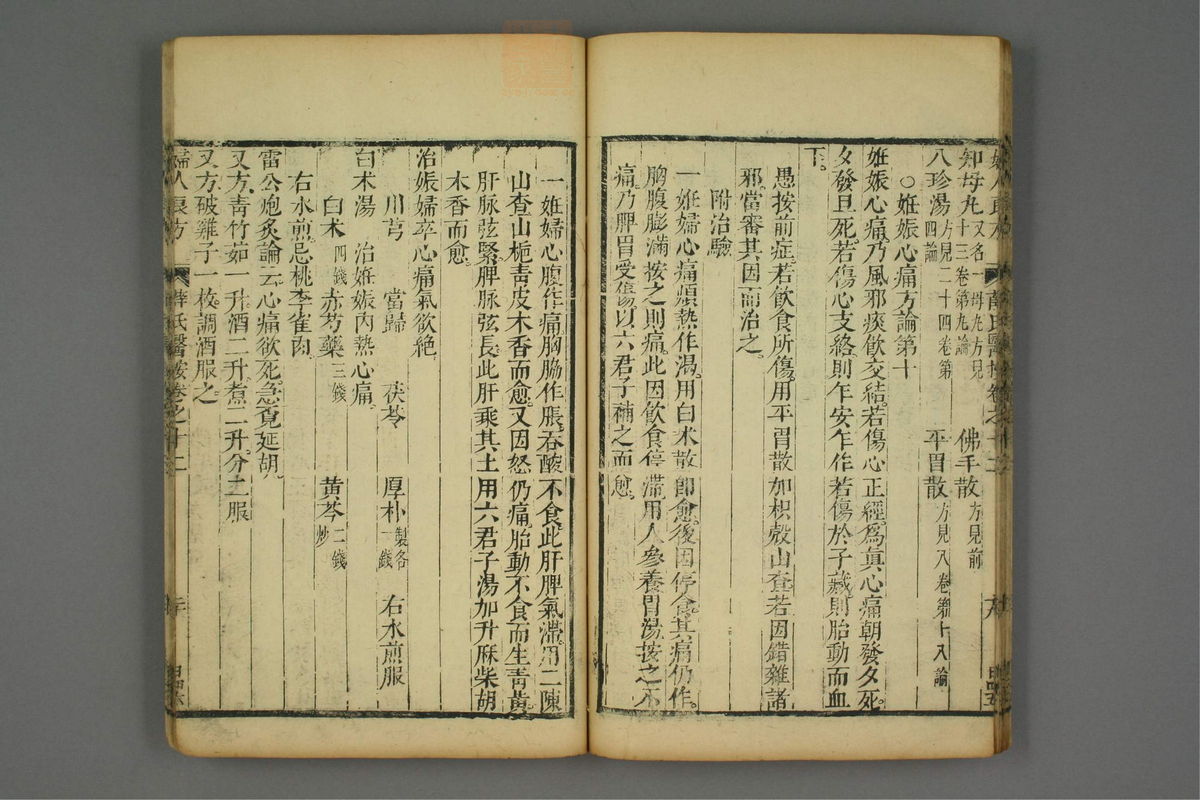 知母丸又名一母丸方見十三卷第九論　佛手散方見前
八珍湯方見二十四卷第四論　平胃散方見八卷第十八論
○妊娠心痛方論第十
妊娠心痛乃風邪痰飲交結若傷心正經為眞心痛朝發夕死
夕發旦死若傷心支絡則乍安乍作若傷於子藏則胎動而血
下
愚按前症若飲食所傷用平胃散加枳殼山查若因錯雜諸
邪當審其因而治之
附治驗
一妊婦心痛煩熱作渴用白朮散卽愈後因停食其痛仍作
胸腹膨滿按之則痛此因飲食停滯用人參養胃湯按之不
痛乃脾胃受傷以六君子補之而愈
一妊婦心腹作痛胸脇作脹吞酸不食此肝脾氣滯用二陳
山查山梔靑皮木香而愈又因怒仍痛胎動不食而生靑黃
肝脉弦緊脾脉弦長此肝乘其土用六君子湯加升麻柴胡
木香而愈
治娠婦卒心痛氣欲絶
川芎　當歸　茯苓　厚朴製各一錢　右水煎服
白朮湯　治妊娠內熱心痛
白朮四錢　赤芍藥三錢　黃芩二錢炒
右水煎忌桃李雀肉
雷公炮炙論云心痛欲死急覓延胡
又方靑竹茹一升酒二升煮二升分二服
又方破雞子一枚調酒服之
婦人良方　薛氏醫按卷之十二